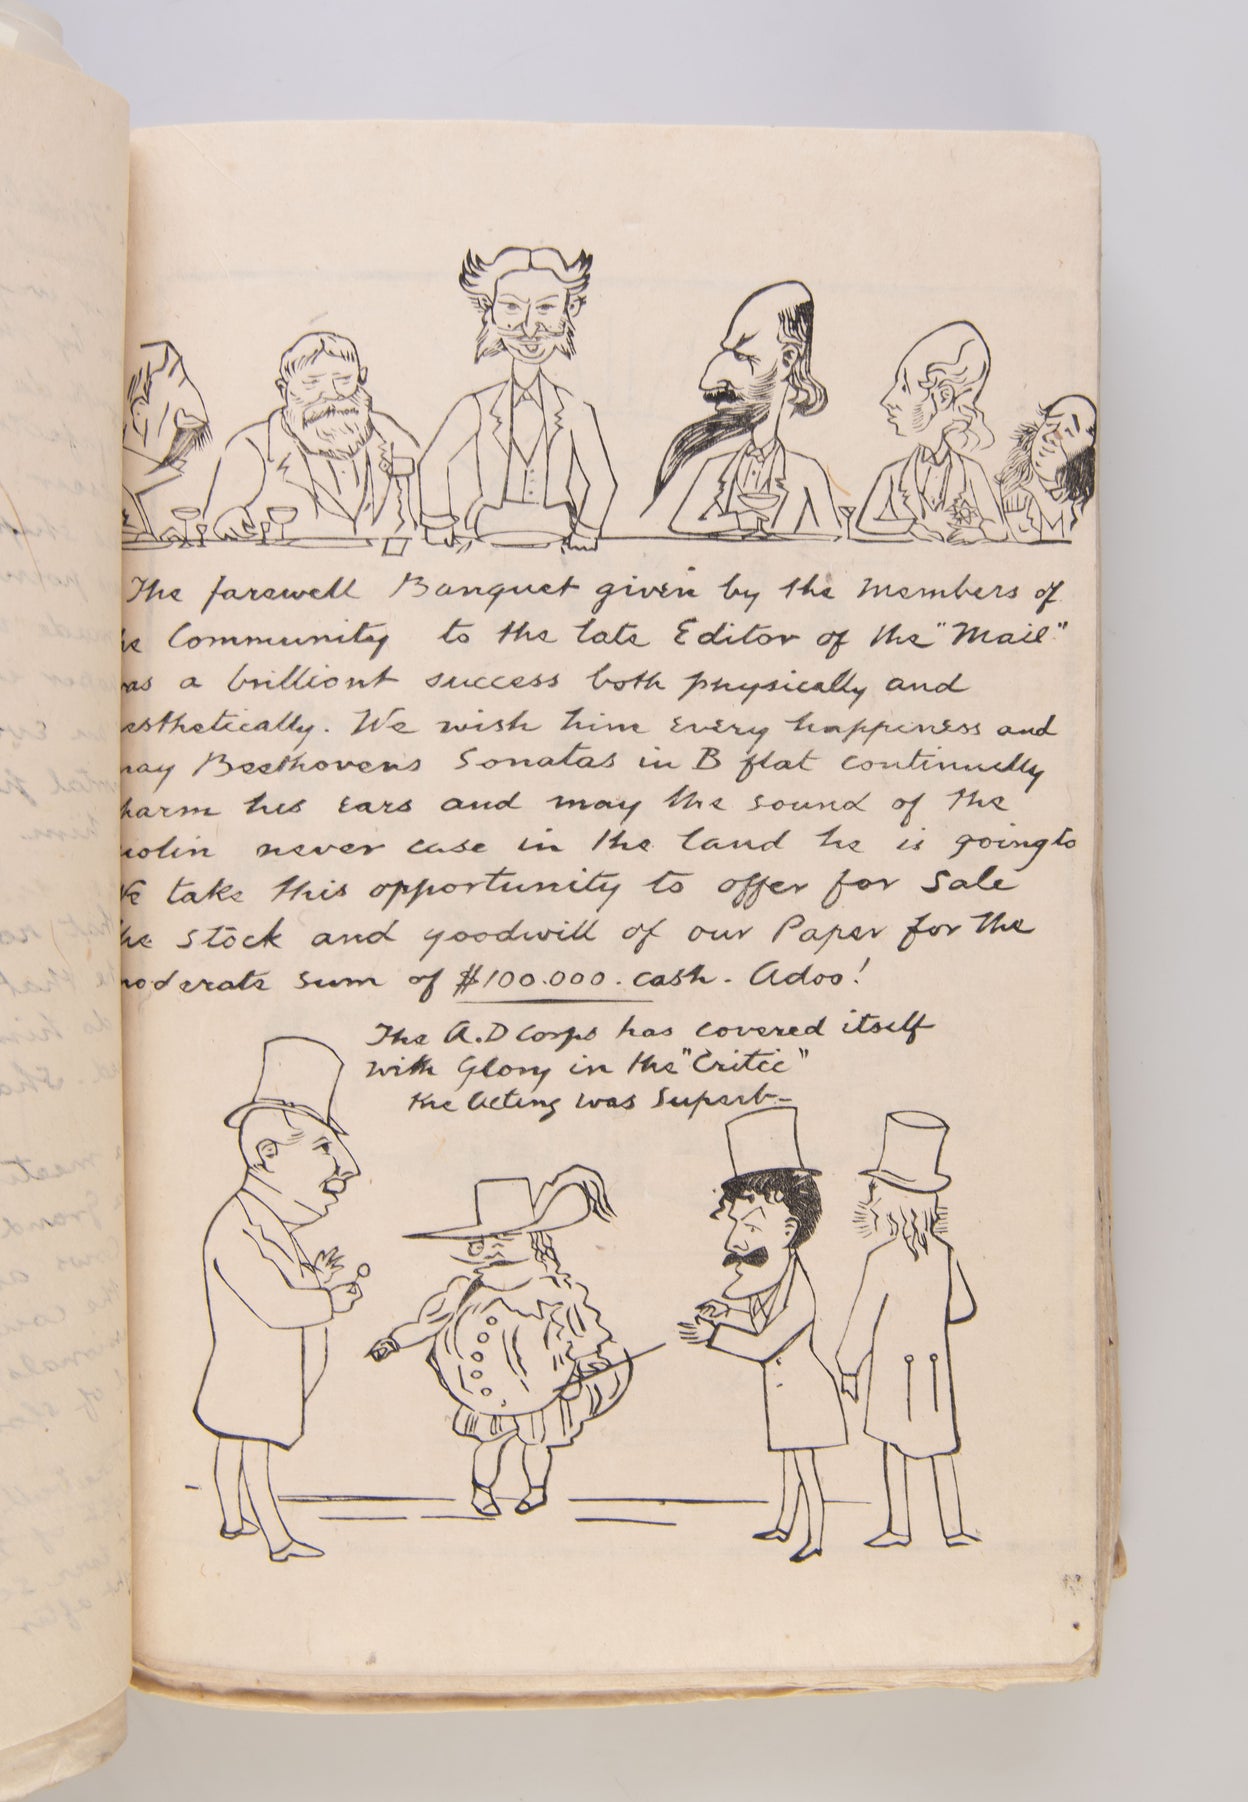 The farewell Banquet given by the Members of
he Community to the late Editor of the "Mail"
as a brilliont success both physically and
esthetically. We wish him every happiness and
may Beethovens Sonatas in B flat continually
harm his ears and may the sound of the
iolin never case in the land he is going to
We take this opportunity to offer for Sale
he stock and goodwill of our Paper for the
moderate sum of $100.000. cash. Adoo!
The A.D Corps has covered itself
with Glory in the "Critic"
the Acting was Superb-